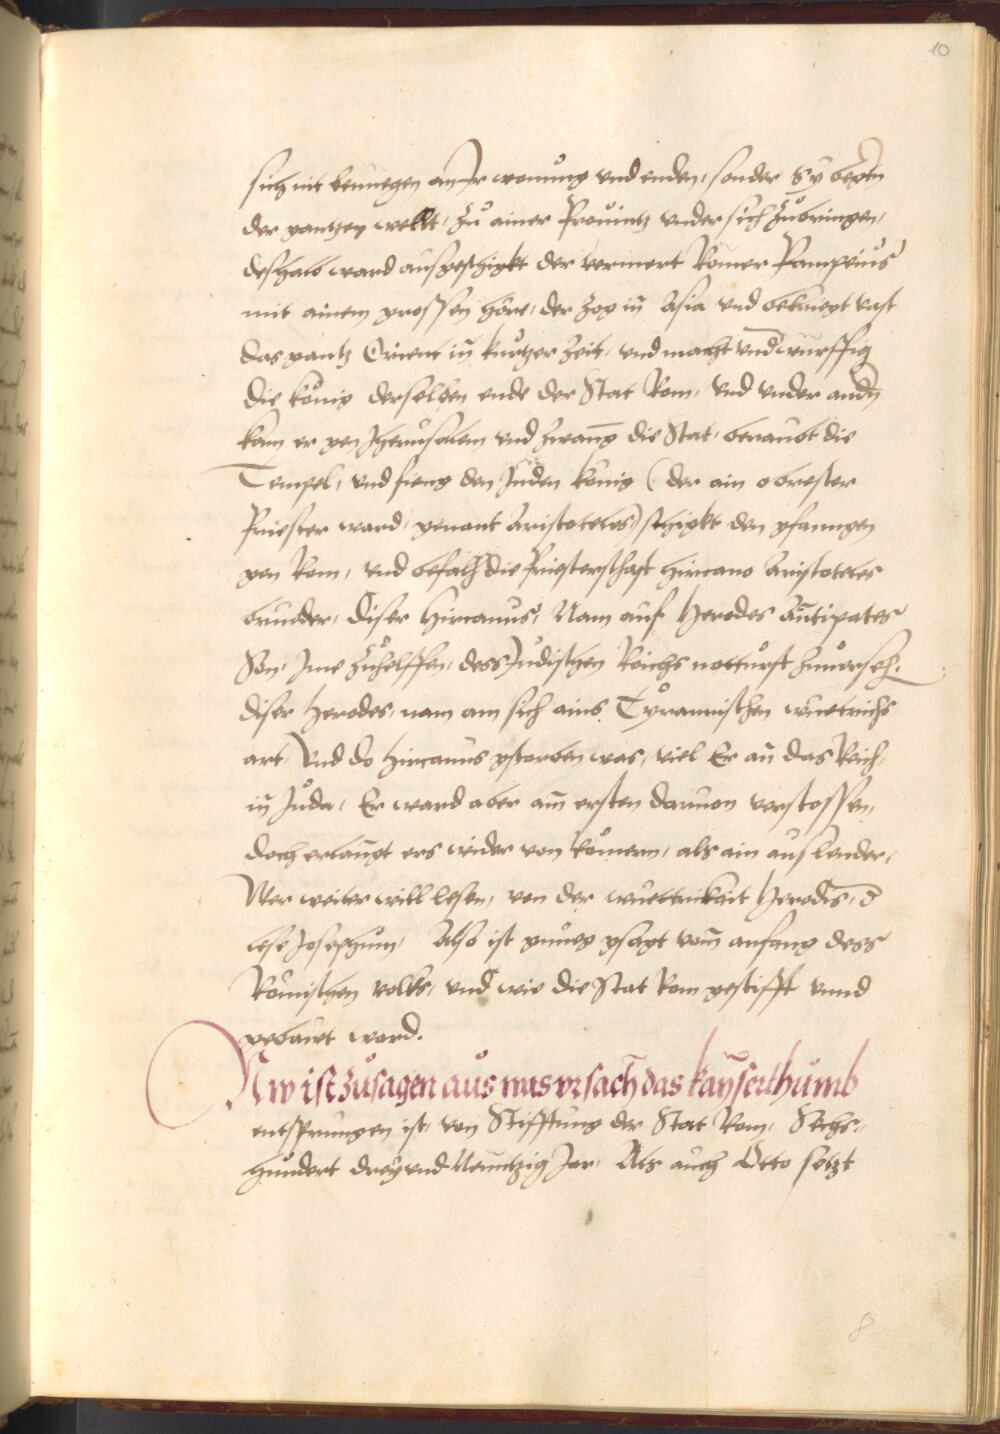 10
sich nit benuegen an Jr wonung vnd enden, sonder Sy begertn
der gantzen wellt, zů ainer Prouintz vnder sich zůbringen,
deshalb ward ausgeschigkt der vermert Römer Pampeius
mit ainem grossen höre, der zog in Asia vnd bekriegt vast
das gantz Orient in kurtzer zeit, vnd macht vnderwurffig
die könig derselben ende der Stat Rom, vnd vnder andern
kam er gen Jherusalem vnd zwang die Stat, beraubt die
Tempel, vnd fieng den Juden könig (der ain obrester
Priester ward, genant Aristoteles) schigkt den gfanngen
gen Rom, vnd befalh die Priesterschaft Hircano Aristoteles
brueder, Diser Hircanus, Nam auf Herodes Antipates
Son, Jme zůhelffen, dess Judischen Reichs notturft zuuorseh.
diser Herodes, nam an sich ains Tyrannischen wuetrichs
art, Vnd do Hircanus gstorben was, viel Er an das Reich,
in Juda, Er ward aber am ersten daruon verstossen,
doch erlangt ers wider von Römern, als ain auslender,
Wer weiter will lesen, von der wuettrikait Herodis, d
lese Josephum, Also ist gnueg gsagt vom anfang dess
Römischen volks, vnd wie die Stat Rom gestifft vnnd
gebawt ward.
Nw ist zůsagen aus was vrsach das kayserthumb
entsprungen ist, von Stifftung der Stat Rom, Sechs-
hundert dreyvnd Neuntzig Jar, Als auch Otto setzt
8